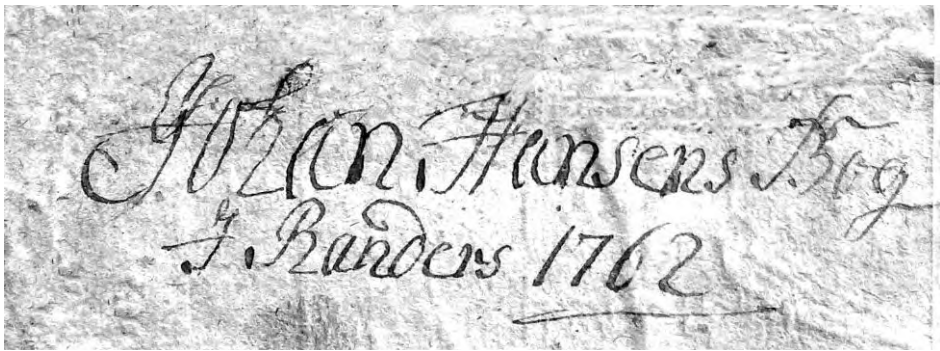 Johan Hansens Bog
I Randers 1762